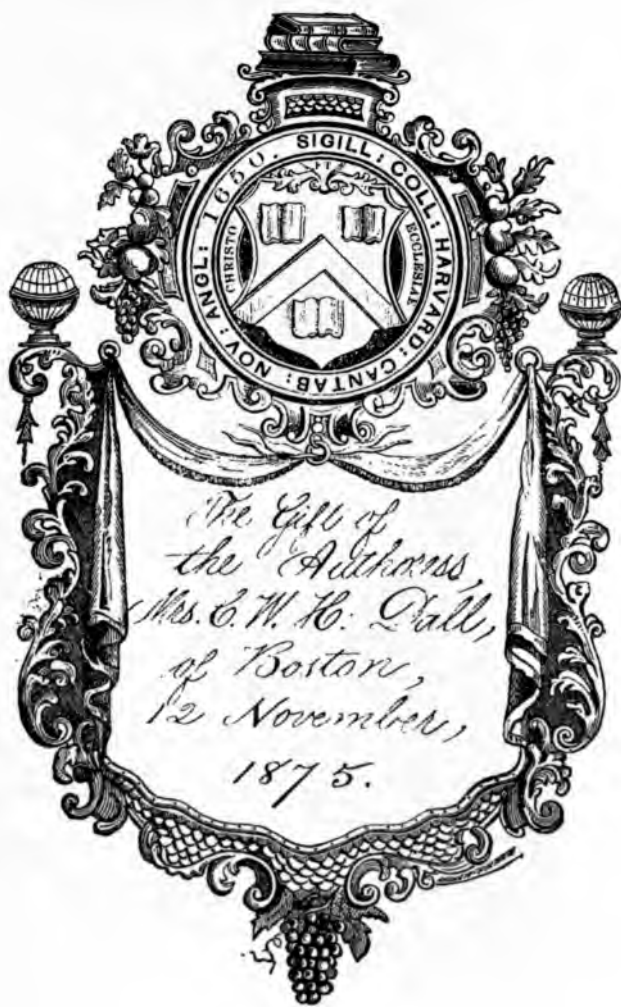 SIGILL: COLL: HARVARD: CANTAB: NOV: ANGL: 1650.
CHRISTO
ECCLESIAE
The Gift of
the Authoress,
Mrs. C. W. H: Dall,
of Boston,
12 November,
1875.